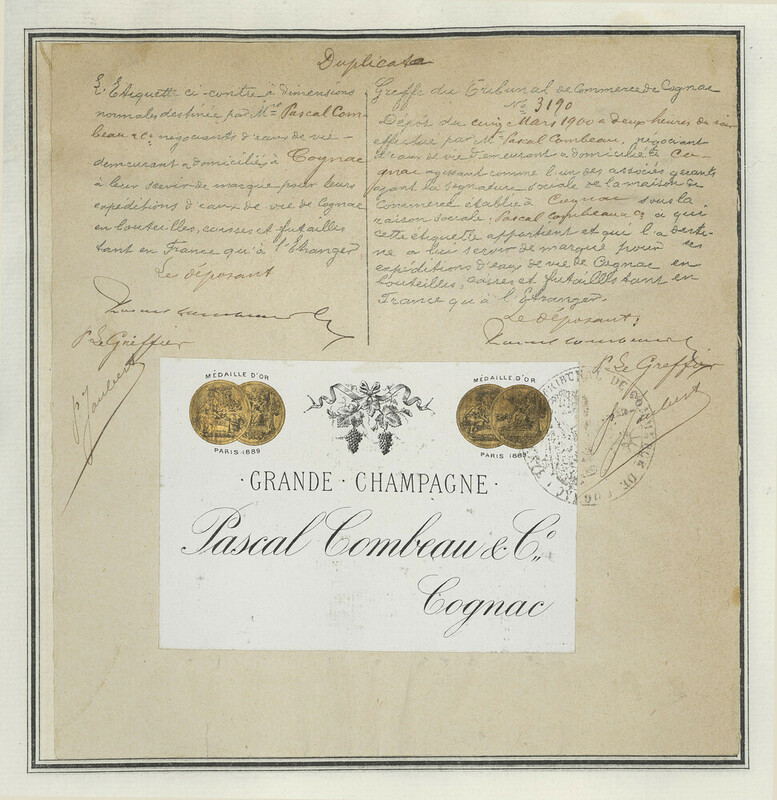 Duplicata
L'Etiquette ci-contre à dimensions
normales destinée par Mrs Pascal Com-
beau & Co négociants d'eaux de vie -
demeurant & domiciliés à Cognac
à leur servir de marque pour leurs
expéditions d'eaux de vie de Cognac
en bouteilles, caisses et futailles
tant en France qu'à l'Etranger
Le déposant
P. Le Greffier
P. Jaubert
Greffe du Tribunal de Commerce de Cognac
No 3190
Dépôt du cinq Mars 1900 à deux heures du soir
effectué par Mr Pascal Combeau, négociant
d'eaux de vie demeurant & domicilié à Co-
gnac agissant comme l'un des associés gérants
ayant la signature sociale de la maison de
Commerce établie à Cognac sous la
raison sociale: Pascal Combeau & Co à qui
cette étiquette appartient et qui l'a desti-
née à lui servir de marque pour ses
expéditions d'eaux de vie de Cognac en
bouteilles, caisses et futailles tant en
France qu'à l'Etranger.
Le déposant:
P. Le Greffier
P. Jaubert
TRIBUNAL DE COMMERCE DE COGNAC
MÉDAILLE D'OR
PARIS 1889
MÉDAILLE D'OR
PARIS 1889
·GRANDE·CHAMPAGNE·
Pascal Combeau & Co.,
Cognac